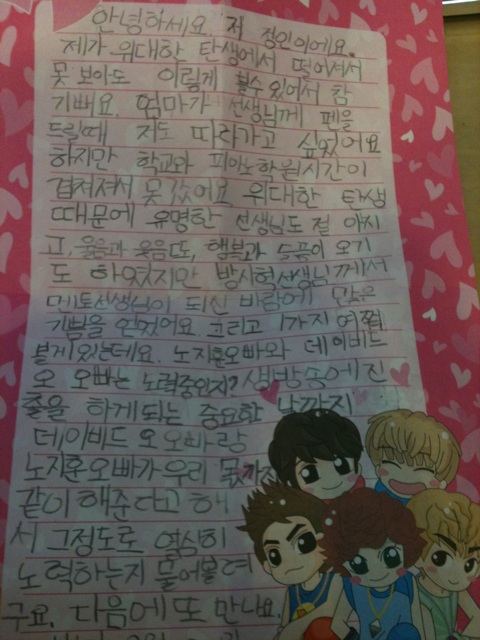 안녕하세요. 저 정인이에요.
제가 위대한 탄생에서 떨어져서
못 보아도 이렇게 볼수 있어서 참
기뻐요. 엄마가 선생님께 펜을
드릴때 저도 따라가고 싶었어요
하지만 학교와 피아노학원시간이
겹쳐져서 못 갔어요 위대한 탄생
때문에 유명한 선생님도 절 아시
고, 울음과 웃음도, 행복과 슬픔이 오기
도 하였지만 방시혁선생님께서
멘토선생님이 되신 바람에 많은
기쁨을 얻었어요 그리고 1가지 여쭤
볼게 있는데요. 노지훈오빠와 데이비드
오 오빠는 노력중인지? 생방속에 진
출을 하게 되는 중요한 날까지
데이비드 오 오빠랑
노지훈 오빠가 우리 몫까지
같이 해준다고 해
서 그정도로 열심히
노력하는지 물어볼려
구요. 다음에 또 만나요.